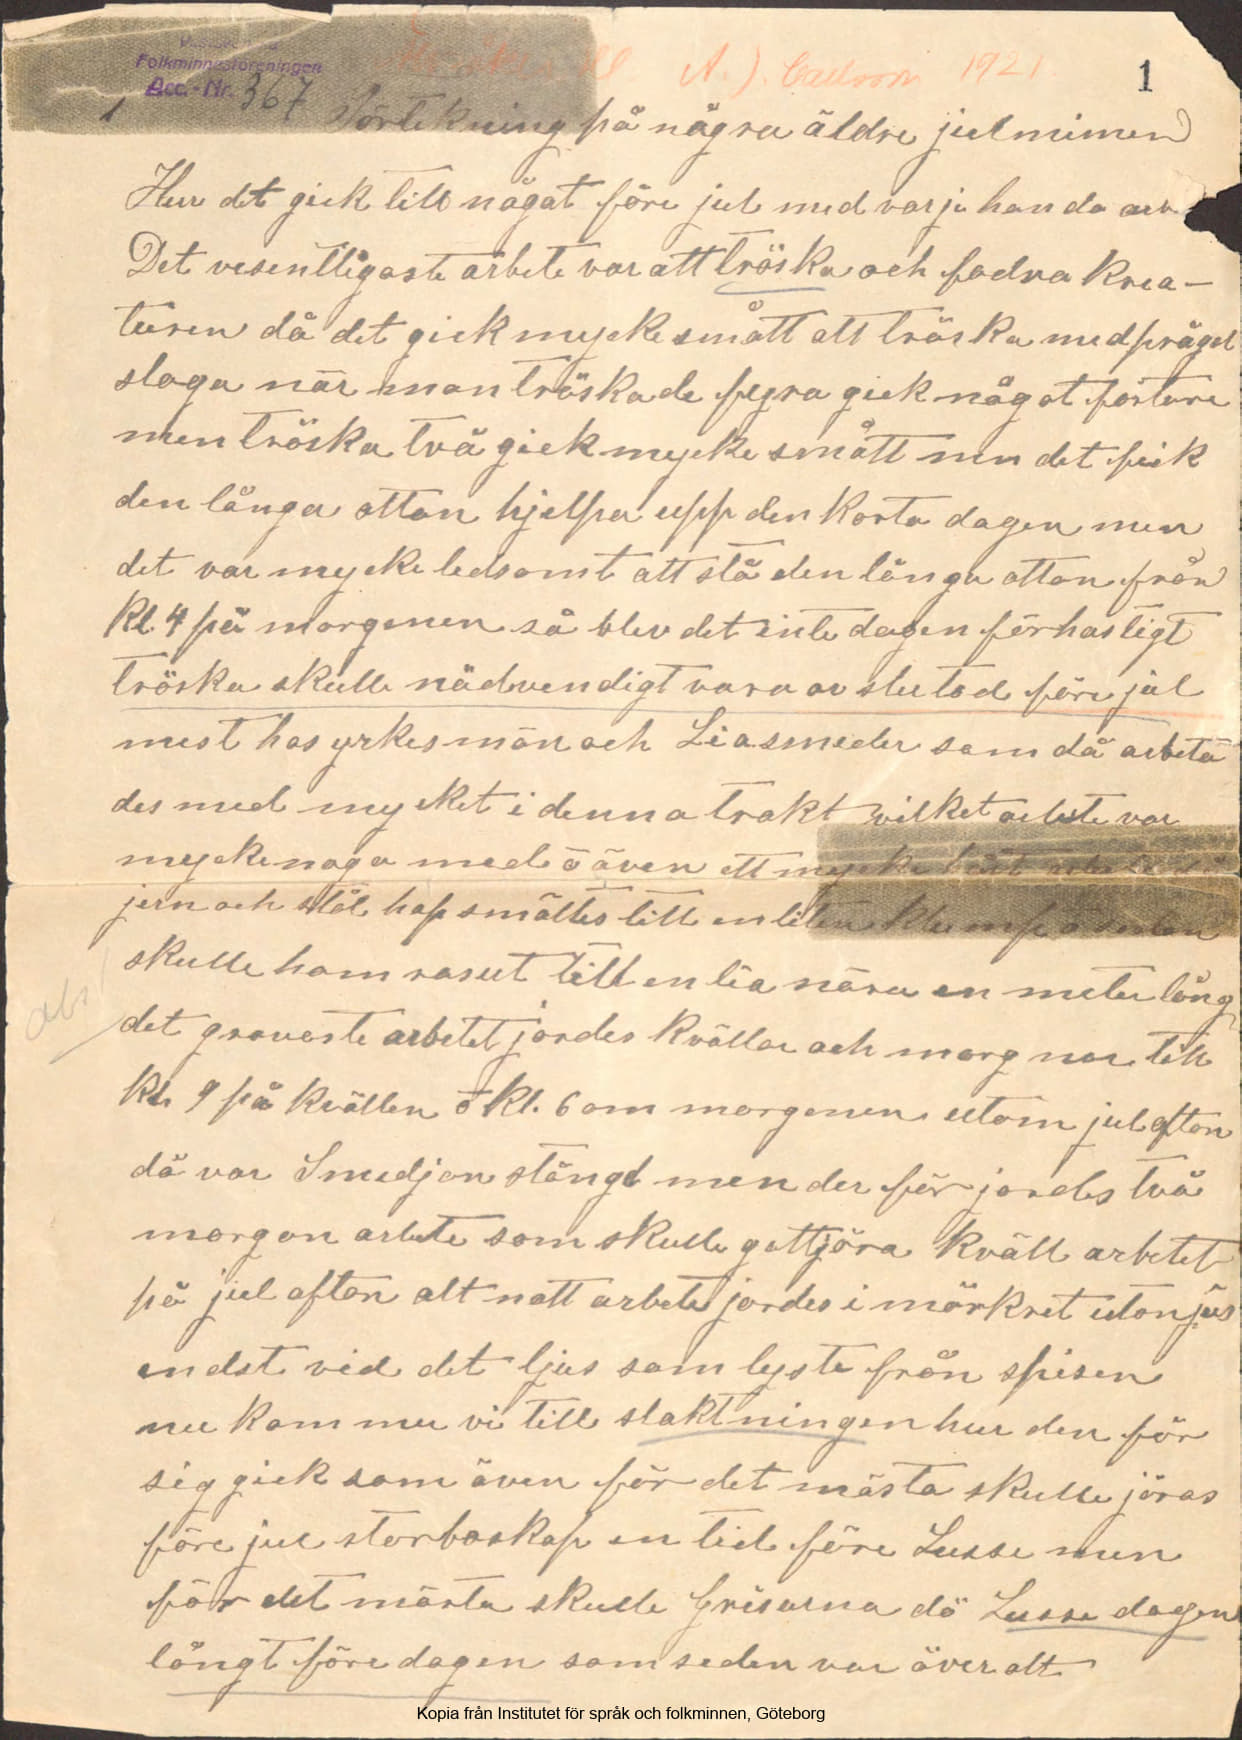 Folkminnesföreningen
Acc.-Nr. 367
A. J. Carlsson 1921
1
Förtekning på några äldre julminnen
Hur det gick till något före jul med varje handa
Det vesentligaste arbete var att tröska och fodra krea-
turen då det gick mycke smått att tröska med prägel
slaga när man tröskade fyra gick något fortare
men tröska två gick mycke smått men det fick
den långa ottan hjelpa upp den korta dagen men
det var mycke ledsamt att stå den långa ottan från
kl. 4 på morgonen så blev det inte dagen förhastigt
tröska skulle nädvendigt vara avslutad före jul
mest hos yrkesmän och Liasmeder som då arbeta
des med mycket i denna trakt vilket arbete var
mycke noga med ö även ett mycke
jern och stål hop smältes till en liten klump
skulle ham rasut till en lia nära en meter lång
abs!
det grovaste arbetet jordes kvällar och morgnar till
kl. 9 på kvällen ö kl. 6 om morgonen utom julafton
då var Smedjan stängd men der för jordes två
morgon arbete som skulle gottjöra kväll arbetet
på jul afton alt natt arbete jordes i mörkret utan jus
endst vid det ljus som lyste från spisen
nu kommer vi till slaktningen hur den för
sig gick som även för det mästa skulle jöras
före jul storboskap en tid före Lusse men
för det mästa skulle grisarna dö Lusse dagen
långt före dagen som seden var överalt
Kopia från Institutet för språk och folkminnen, Göteborg